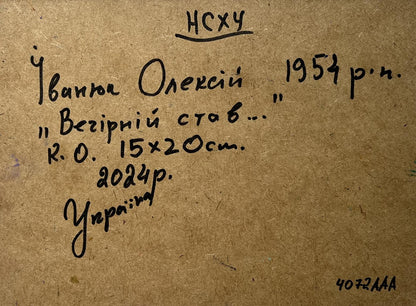 НСХУ
Іванюк Олексій 1954 р.н.
„Вечірній став..."
к.о. 15х20см.
2024р.
Україна
4072ААА